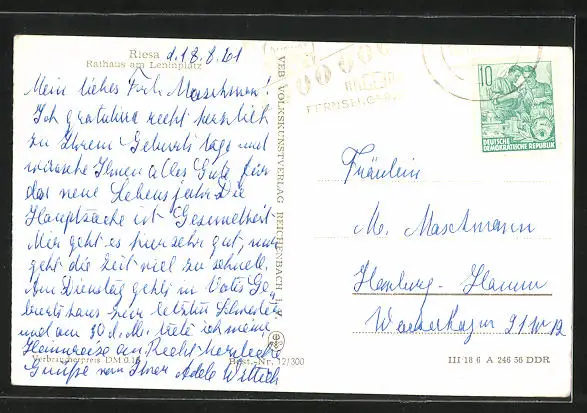 Riesa d. 18.8.61
Rathaus am Leninplatz
Mein liebes Frl. Maschmann!
Ich gratuliere recht herzlich
zu Ihrem Geburtstage und
wünsche Ihnen alles Gute für
das neue Lebensjahr. Die
Hauptsache ist Gesundheit.
Mir geht es hier sehr gut, nur
geht die Zeit viel zu schnell.
Am Dienstag gehts in Vaters Ge-
burtshaus zur letzten Schwester
und am 30. d. M. trete ich meine
Heimreise an. Recht herzliche
Grüße von Ihrer Adele Wittich
Verbraucherpreis DM 0.15
Best.-Nr. 12/300
VEB VOLKSKUNSTVERLAG REICHENBACH i. V.
FERNSEH
10
DEUTSCHE
DEMOKRATISCHE REPUBLIK
Fräulein
M. Maschmann
Hamburg-Hamm
91
III 18 6 A 246 56 DDR